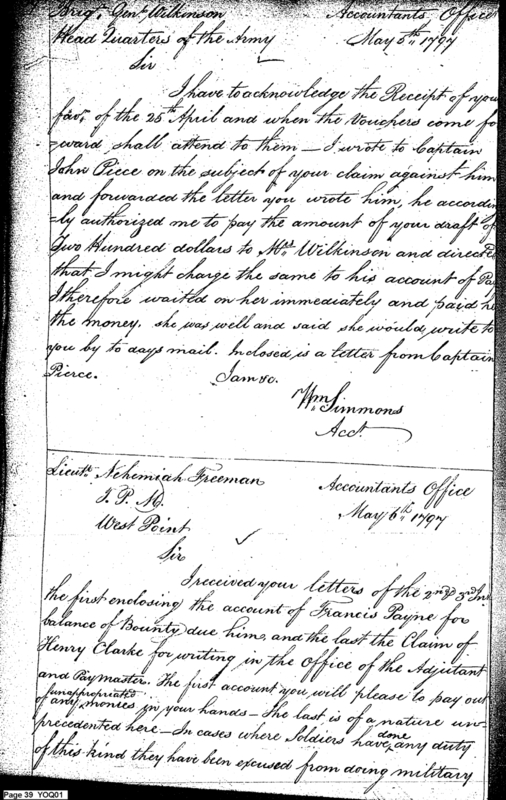 Brigr. Genl. Wilkinson Accountants Office
Head Quarters of the Army May 5th 1797
Sir
I have to acknowledge the Receipt of your
favr. of the 25th April and when the Vouchers come for
=ward, shall attend to them — I wrote to Captain
John Piece on the subject of your claim against him
and forwarded the letter you wrote him, he accordin
=ly authorized me to pay the amount of your draft of
Two Hundred dollars to Mrs. Wilkinson and directed
that I might charge the same to his account of Pay
I therefore waited on her immediately and paid he
the money. she was well and said she would write to
you by to days mail. Inclosed is a letter from Captain
Pierce. I am &c.
Wm. Simmons
Acct.
Lieutt. Nehemiah Freeman Accountants Office
T. P. M. May 6th 1797
West Point
Sir
I received your letters of the 2nd & 3rd Ins
the first enclosing the account of Francis Payne for
balance of Bounty due him, and the last the Claim of
Henry Clarke for writing in the Office of the Adjutant
and Paymaster. The first account you will please to pay out
of any unappropriated monies in your hands — The last is of a nature un-
precedented here — In cases where Soldiers have done any duty
of this kind they have been excused from doing military
Page 39 YOQ01